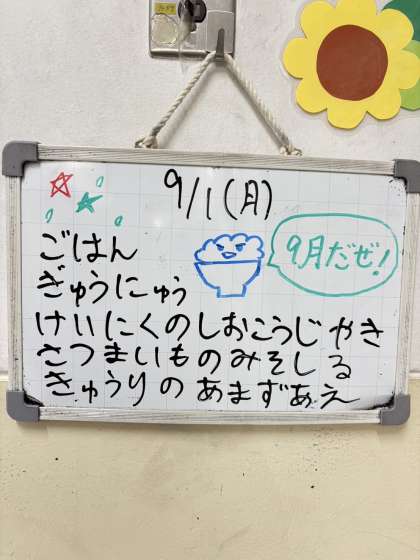 9/1(月)
9月だぜ!
ごはん
ぎゅうにゅう
けいにくのしおこうじやき
さつまいものみそしる
きゅうりのあまずあえ